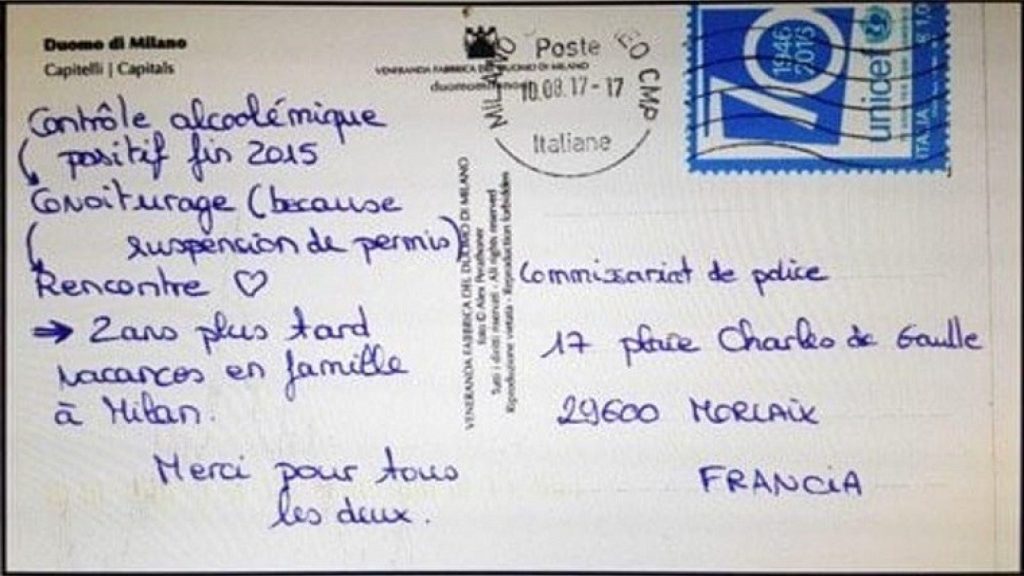 Duomo di Milano
Capitelli | Capitals
Contrôle alcoolémique
positif fin 2015
Covoiturage (because
suspension de permis)
Rencontre ♡
→ 2 ans plus tard
vacances en famille
à Milan.
Merci pour tous
les deux.
VENERANDA FABBRICA DEL DUOMO DI MILANO
duomomilano
VENERANDA FABBRICA DEL DUOMO DI MILANO
Foto © Alex
Tutti i diritti riservati - All rights reserved
Riproduzione vietata - Reproduction forbidden
MILANO
CMP
Poste
10.08.17-17
Italiane
70
1946
2016
unicef
ITALIA
Commissariat de police
17 place Charles de Gaulle
29600 MORLAIX
FRANCIA